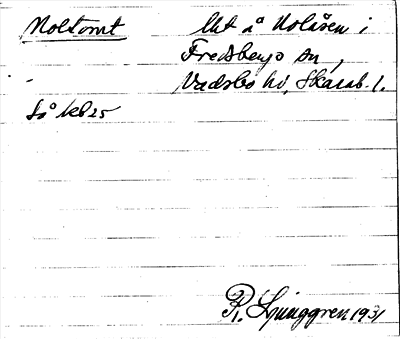 Noltomt
Lht å Nolåsen i
Fredsbergs sn,
Vadsbo hd, Skarab. l.
Så kb 25
R. Ljunggren 1931